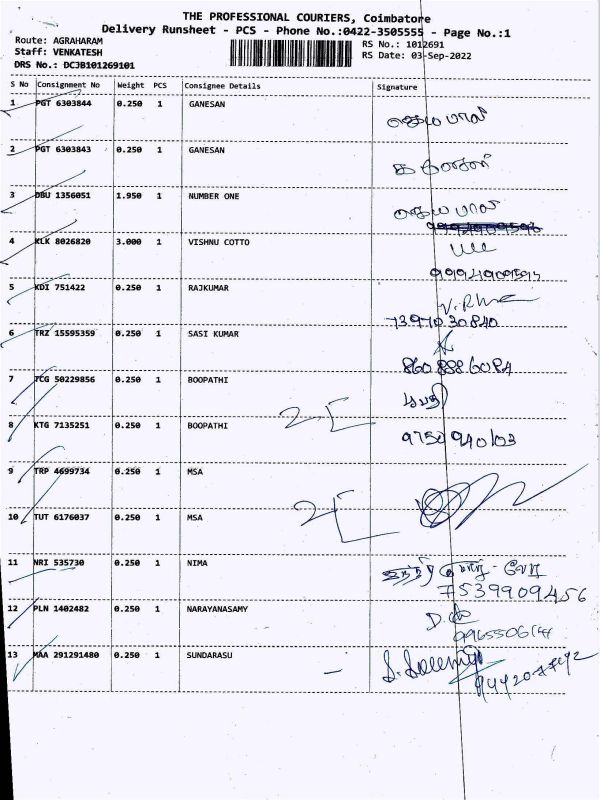 THE PROFESSIONAL COURIERS, Coimbatore
Delivery Runsheet - PCS - Phone No.:0422-3505555 - Page No.:1
Route: AGRAHARAM
Staff: VENKATESH
DRS No.: DCJB101269101
RS No.: 1012691
RS Date: 03-Sep-2022
S No Consignment No Weight PCS Consignee Details Signature
1 PGT 6303844 0.250 1 GANESAN
2 PGT 6303843 0.250 1 GANESAN
3 DBU 1356051 1.950 1 NUMBER ONE
4 KLK 8026820 3.000 1 VISHNU COTTO
5 KDI 751422 0.250 1 RAJKUMAR
7397030840
6 TRZ 15595359 0.250 1 SASI KUMAR
8608886084
7 TCG 50229856 0.250 1 BOOPATHI பூபதி
8 KTG 7135251 0.250 1 BOOPATHI 2
9750940103
9 TRP 4699734 0.250 1 MSA
10 TUT 6176037 0.250 1 MSA 2
11 NRI 535730 0.250 1 NIMA
7539909456
12 PLN 1402482 0.250 1 NARAYANASAMY
13 MAA 291291480 0.250 1 SUNDARASU